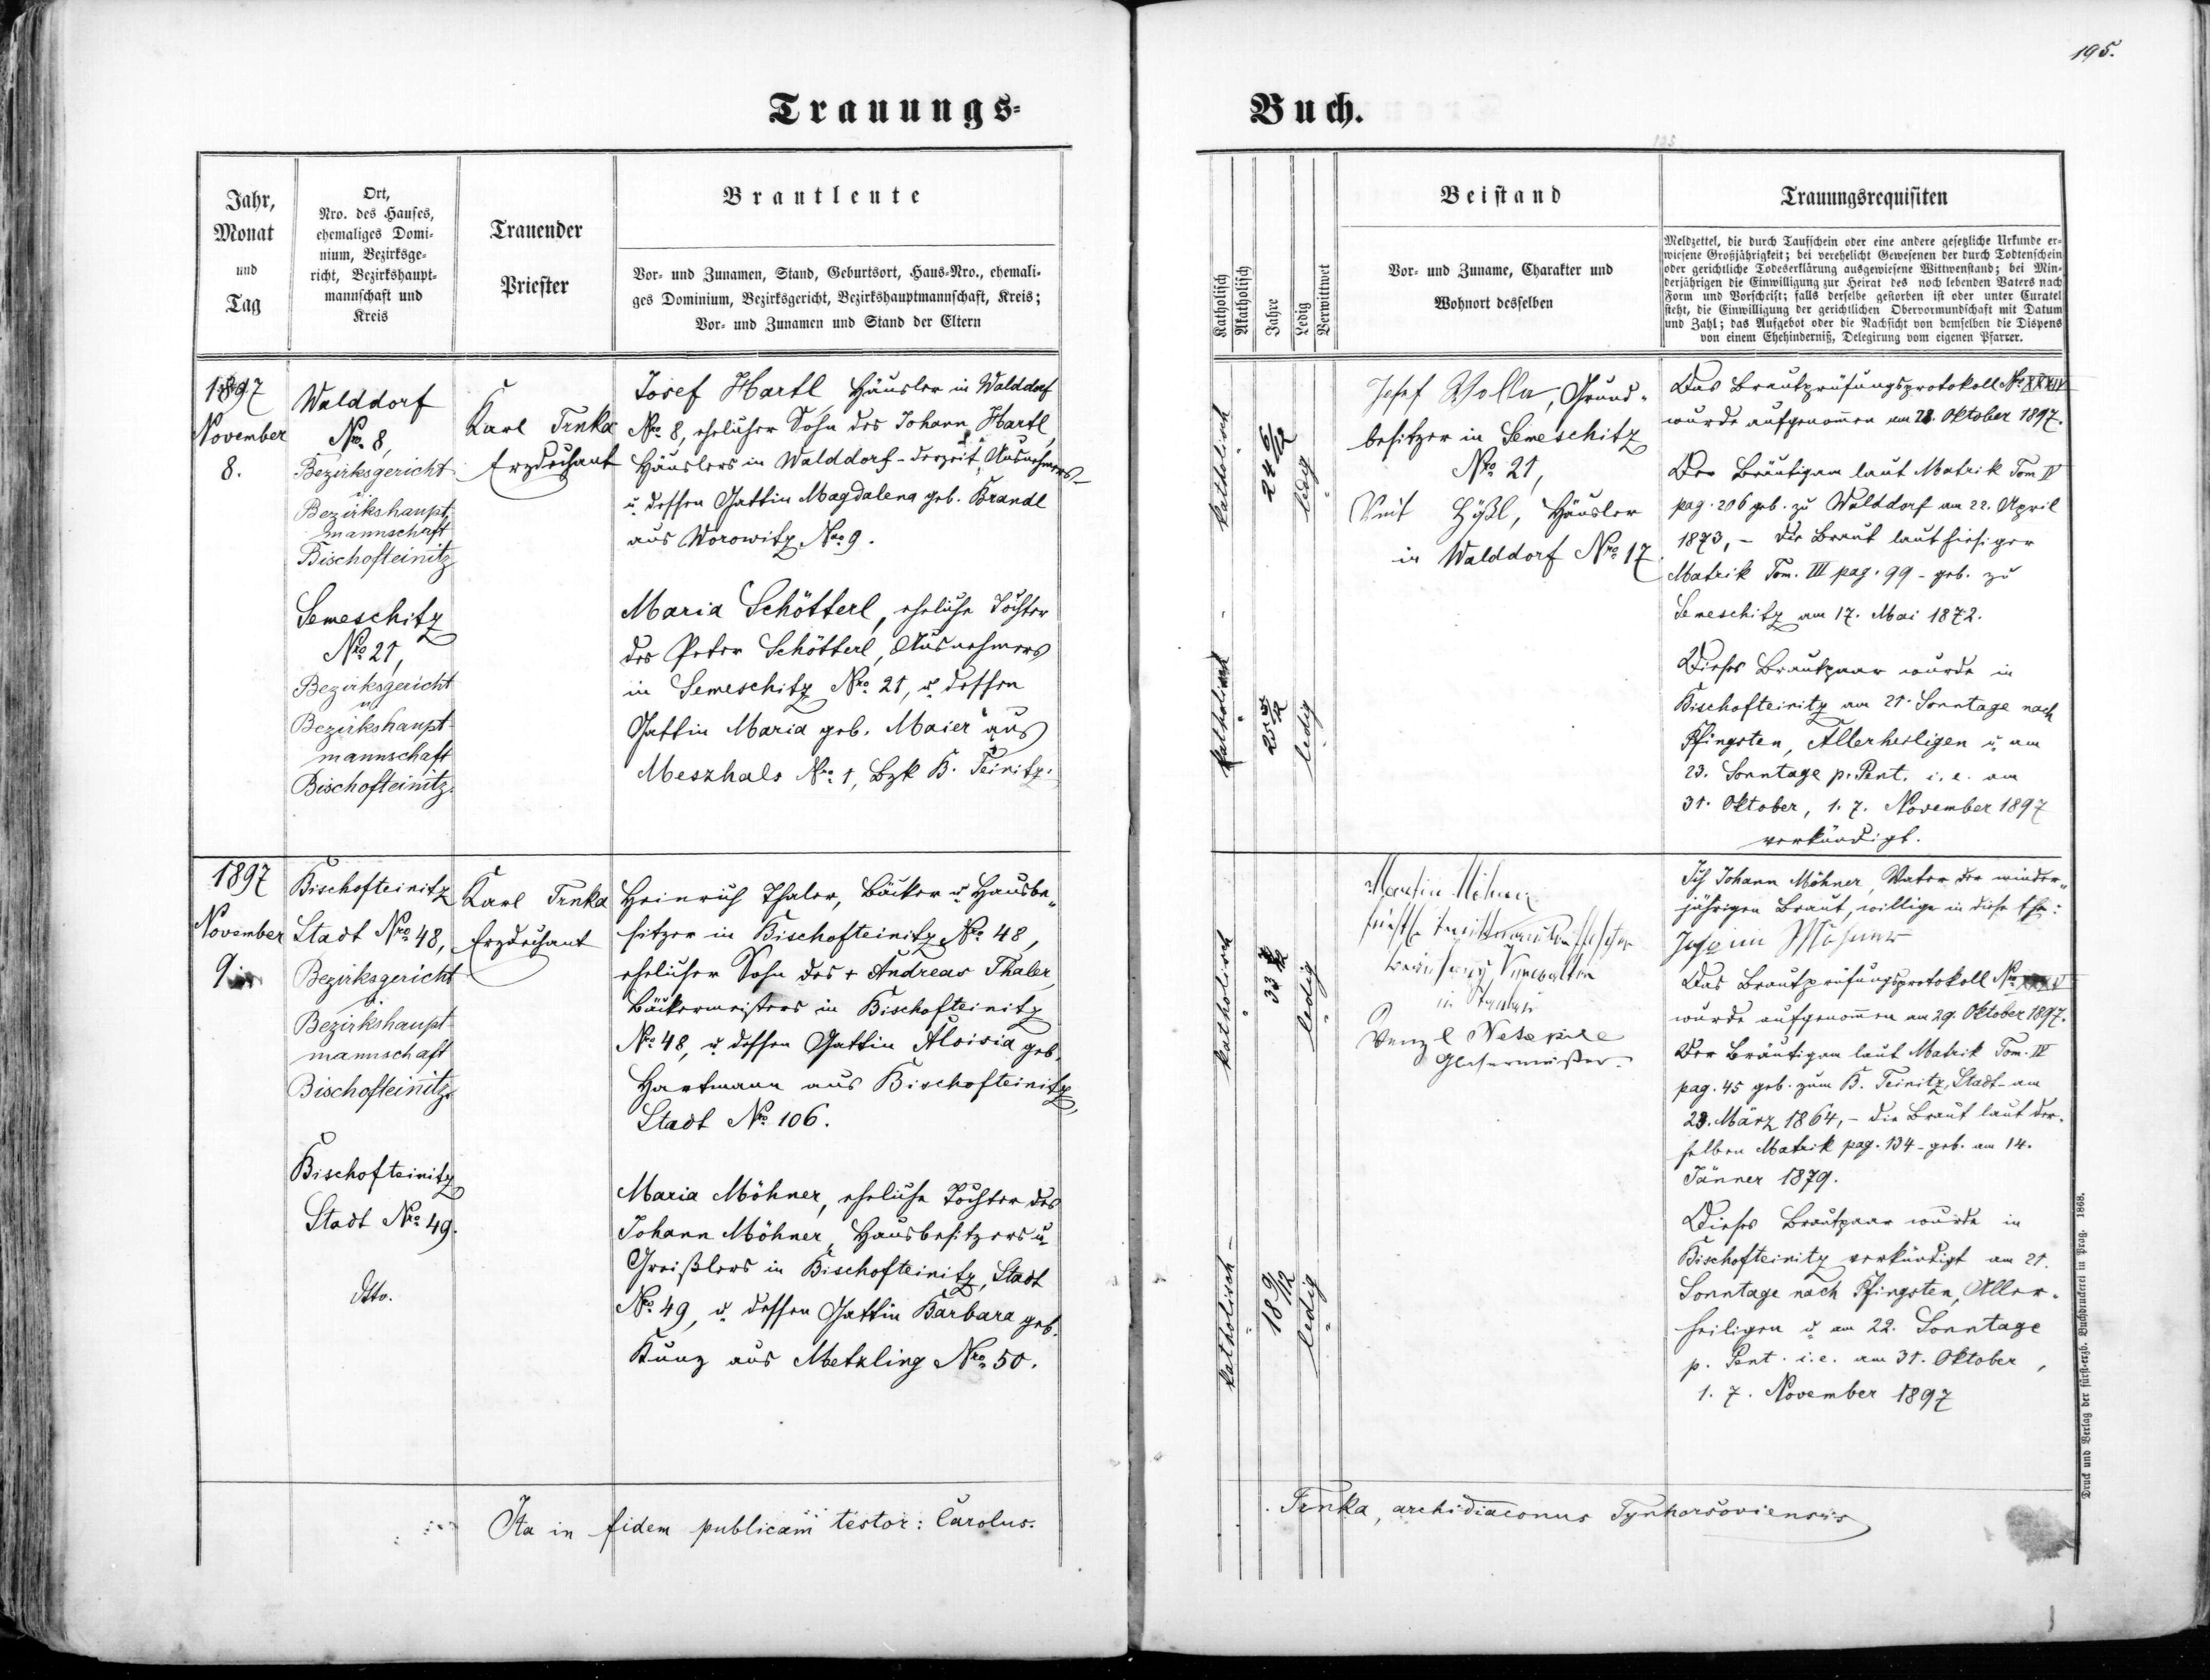 195.
Trauungs-
Buch.
Jahr,
Monat
und
Tag
Ort,
Nro. des Hauses,
ehemaliges Domi-
nium, Bezirksge-
richt, Bezirkshaupt-
mannschaft und
Kreis
Trauender
Priester
Brautleute
Vor- und Zunamen, Stand, Geburtsort, Haus-Nro., ehemali-
ges Dominium, Bezirksgericht, Bezirkshauptmannschaft, Kreis;
Vor- und Zunamen und Stand der Eltern
Katholisch
Akatholisch
Jahre
Ledig
Verwittwet
Beistand
Vor- und Zuname, Charakter und
Wohnort desselben
Trauungsrequisiten
Meldzettel, die durch Taufschein oder eine andere gesetzliche Urkunde er-
wiesene Großjährigkeit; bei verehelicht Gewesenen der durch Todtenschein
oder gerichtliche Todeserklärung ausgewiesene Wittwenstand; bei Min-
derjährigen die Einwilligung zur Heirat des noch lebenden Vaters nach
Form und Vorschrift; falls derselbe gestorben ist oder unter Curatel
steht, die Einwilligung der gerichtlichen Obervormundschaft mit Datum
und Zahl; das Aufgebot oder die Nachsicht von demselben die Dispens
von einem Ehehinderniß, Delegirung vom eigenen Pfarrer.
1897
November
8.
Walddorf
Nro. 8,
Bezirksgericht
u.
Bezirkshaupt-
mannschaft
Bischofteinitz
Semeschitz
Nro. 21,
Bezirksgericht
u
Bezirkshaupt-
mannschaft
Bischofteinitz.
Karl Trnka
Erzdechant
Josef Hartl, Häusler in Walddorf
Nro 8, ehelicher Sohn des Johann Hartl,
Häuslers in Walddorf - derzeit Ausnehmers -
u. dessen Gattin Magdalena geb. Brandl
aus Worowitz Nro 9.
Maria Schötterl, eheliche Tochter
des Peter Schötterl, Ausnehmers
in Semeschitz Nro. 21, u. dessen
Gattin Maria geb. Maier aus
Meszhals Nro. 1, Bzk B. Teinitz.
katholisch
24 6/12
ledig
katholisch
25 5/12
ledig
Josef Wolla, Grund-
besitzer in Semeschitz
Nro. 21,
Veit , Häusler
in Walddorf Nro. 17.
Das Brautprüfungsprotokoll No. XXXIV
wurde aufgenommen am 28. Oktober 1897.
Der Bräutigam laut Matrik Tom IV
pag. 206 geb. zu Walddorf am 22. April
1873, - die Braut laut hiesiger
Matrik Tom. III pag. 99 - geb. zu
Semeschitz am 17. Mai 1872.
Dieses Brautpaar wurde in
Bischofteinitz am 21. Sonntage nach
Pfingsten, Allerheiligen u. am
23. Sonntage p. Pent. i. e. am
31. Oktober, 1. 7. November 1897
verkündigt.
1897
November
9.
Bischofteinitz
Stadt Nro. 48,
Bezirksgericht
u.
Bezirkshaupt-
mannschaft
Bischofteinitz
Bischofteinitz
Stadt Nro. 49.
dtto.
Karl Trnka
Erzdechant
Heinrich Thaler, Bäcker u. Hausbe-
sitzer in Bischofteinitz No. 48,
ehelicher Sohn des + Andreas Thaler,
Bäckermeisters in Bischofteinitz
No. 48, u. dessen Gattin Aloisia geb.
Hartmann aus Bischofteinitz,
Stadt No. 106.
Maria Möhner, eheliche Tochter des
Johann Möhner, Hausbesitzers u.
Greißlers in Bischofteinitz, Stadt
No. 49, u. dessen Gattin Barbara geb.
Kunz aus Metzling Nro. 50.
katholisch
33
ledig
katholisch -
18 9/12
ledig
Martin Möhner
Wenzl
Glasermeister.
Ich Johann Möhner, Vater der minder-
jährigen Braut, willige in diese Ehe:
Möhner
Das Brautprüfungsprotokoll No. XXXV
wurde aufgenommen am 29. Oktober 1897.
Der Bräutigam laut Matrik Tom. IV
pag. 45 geb. zum B. Teinitz, Stadt - am
23. März 1864, - die Braut laut der-
selben Matrik pag. 134 - geb. am 14.
Jänner 1879.
Dieses Brautpaar wurde in
Bischofteinitz verkündigt am 21.
Sonntage nach Pfingsten, Aller-
heiligen u. am 22. Sonntage
p. Pent. i. e. am 31. Oktober,
1. 7. November 1897
Ita in fidem publicam testor: Carolus.
Trnka, archidiaconus Tynhoršoviensis
Druck und Verlag der fürst-erzb. Buchdruckerei in Prag. 1868.